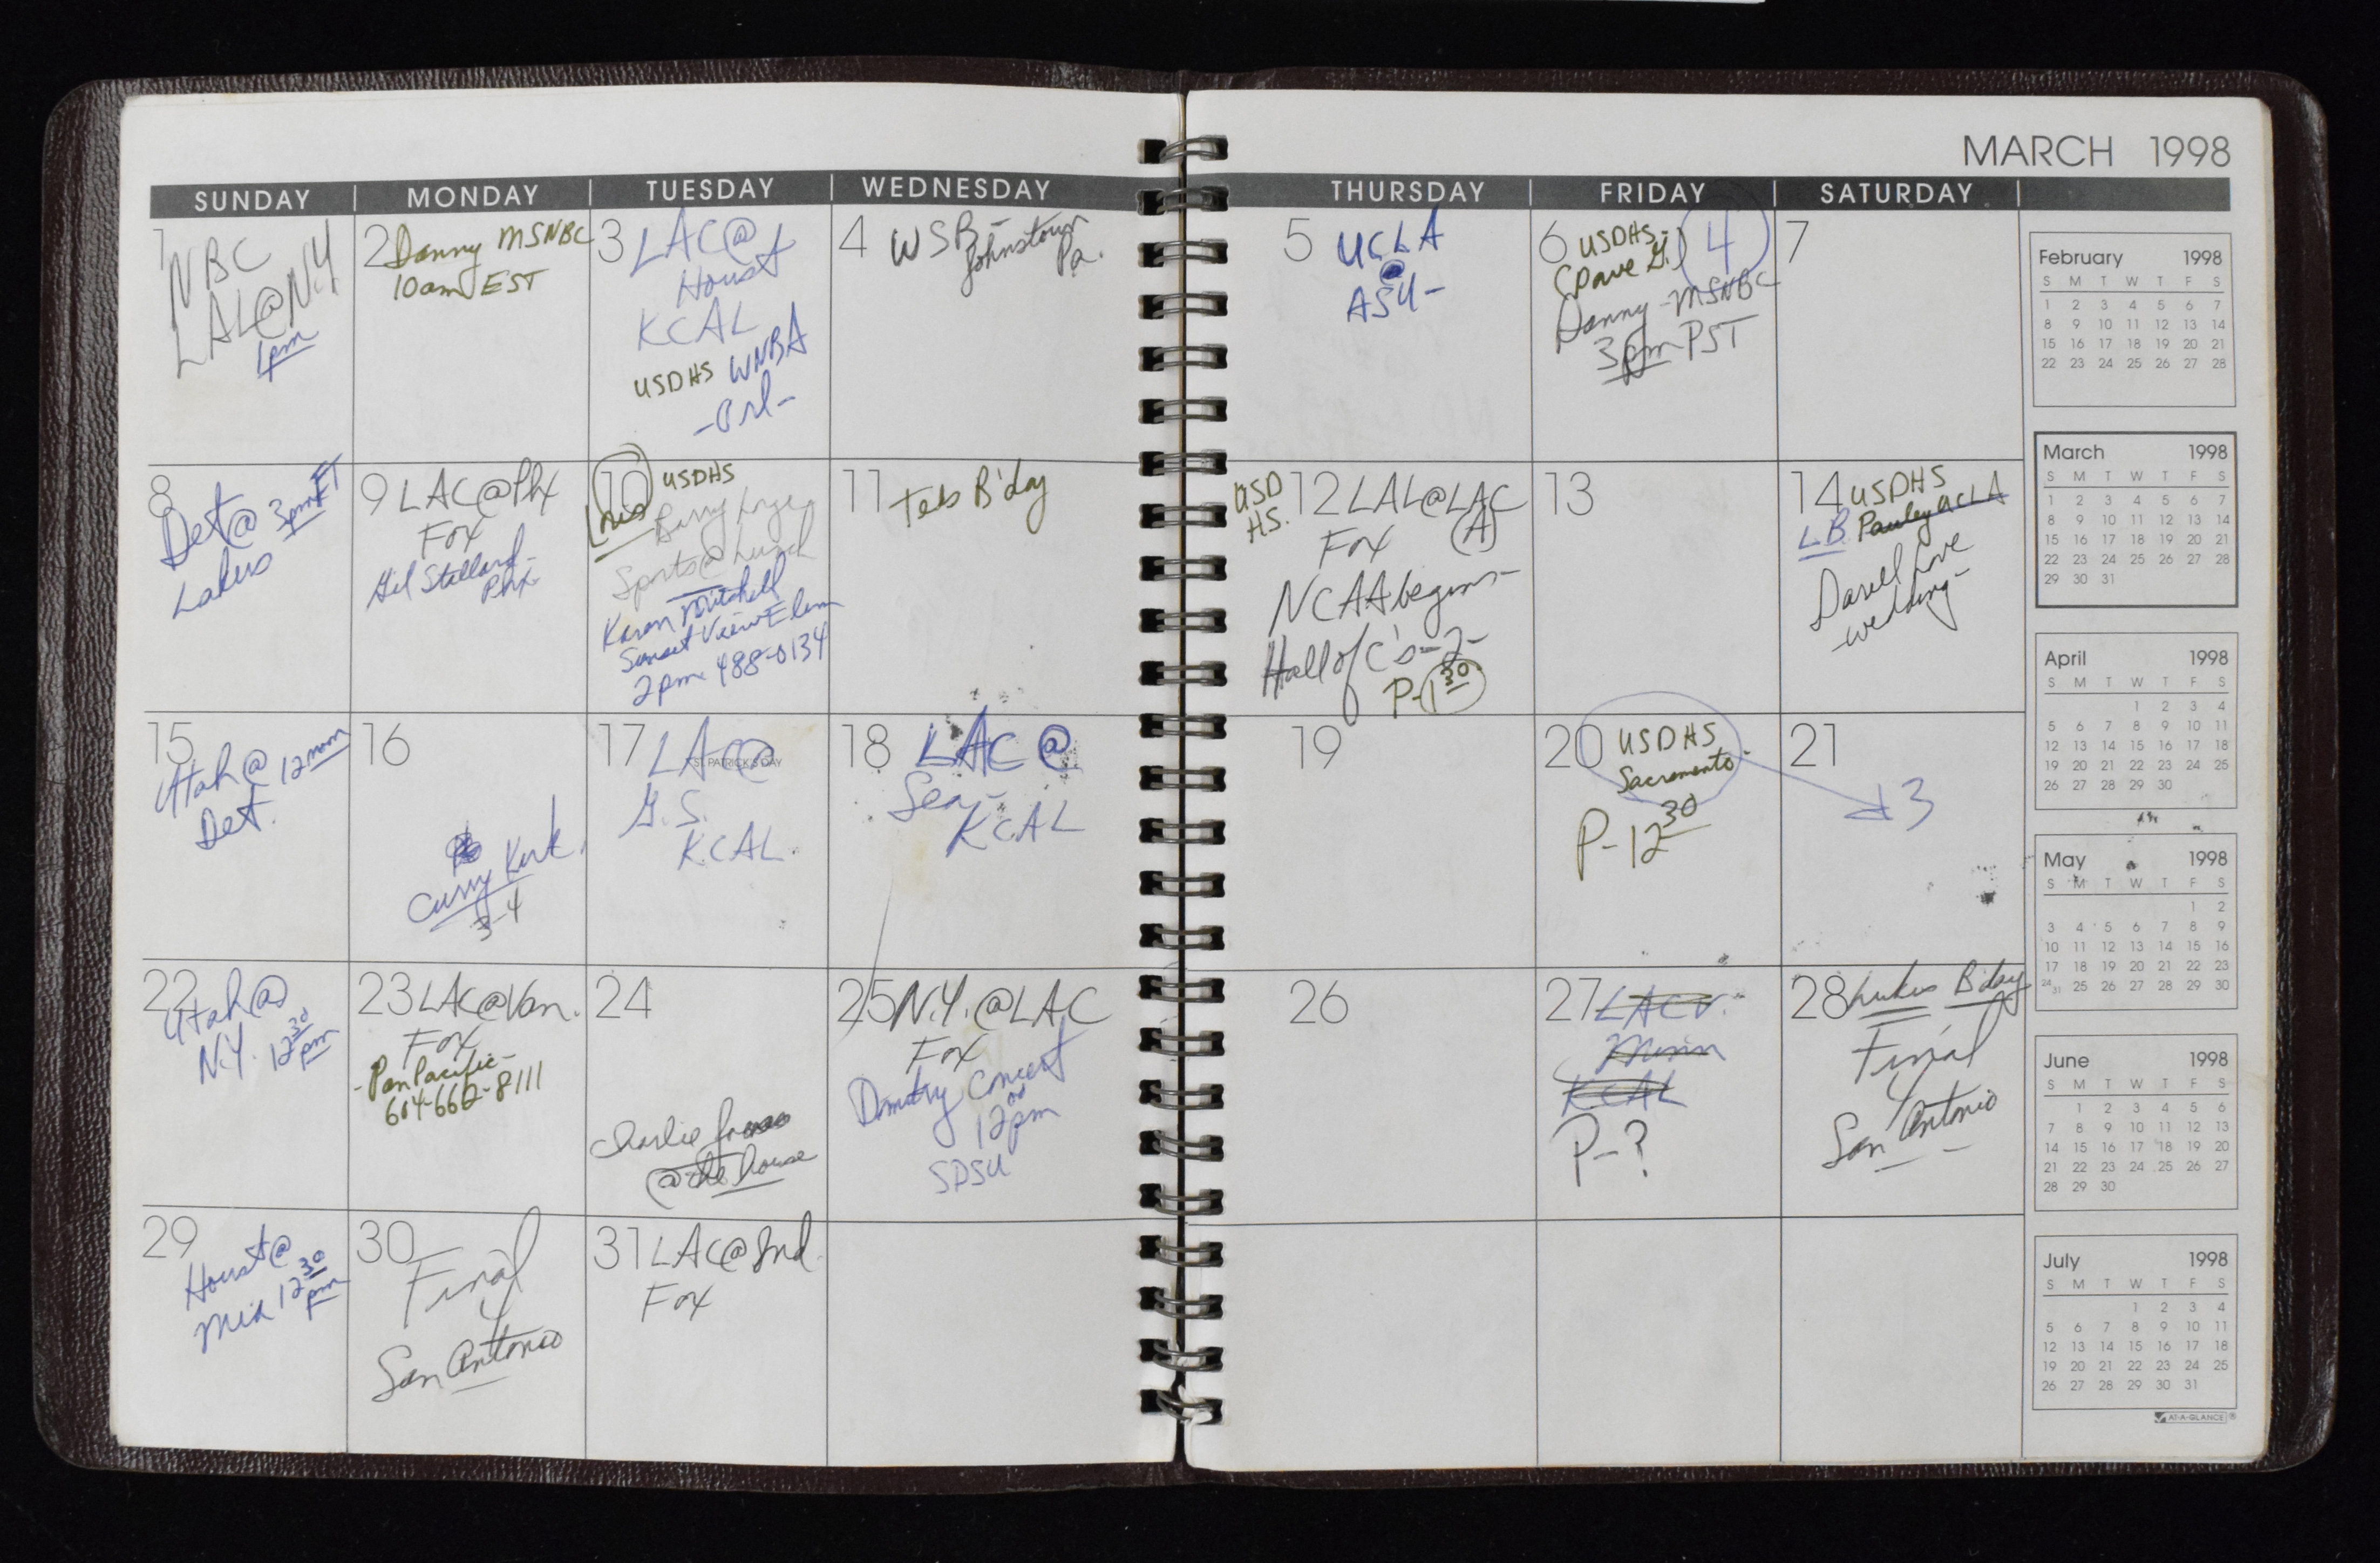 MARCH 1998
SUNDAY
MONDAY
TUESDAY
WEDNESDAY
THURSDAY
FRIDAY
SATURDAY
1
NBC
LAL@NY
1pm
2 Danny MSNBC
10am EST
3 LAC@
Houst
KCAL
USDHS WNBA
-Orl-
4 WSB-
Johnstown
Pa.
5 UCLA
@
ASU-
6 USDHS-
(Dave G.) 4
Danny-MSNBC
3pm PST
7
8
Det@ 3pm ET
Lakers
9 LAC@Phx
Fox
Gil Stallard-
Phx-
10 USDHS
Barry
Sports@Lunch
Karan Mitchell
Sunset View Elem
2pm 488-0134
11 Teds B'day
USD
HS.
12 LAL@LAC
(A)
Fox
NCAA begins-
Hall of C's-2-
P-1 30
13
14 USDHS
LB Pauley UCLA
Darell Love
wedding-
15
Utah@ 12noon
Det.
16
Curry Kirk
3-4
17 LAC@
ST. PATRICK'S DAY
G.S.
KCAL.
18 LAC@
Sea-
KCAL
19
20 USDHS
Sacramento
P-12 30
21
3
22
Utah@
N.Y. 12 30 pm
23 LAC@Van.
Fox
-Pan Pacific-
604-662-8111
24
Charlie
@the house
25 N.Y.@LAC
Fox
Concert
12 00 pm
SDSU
26
27 LAC v.
Minn
KCAL
P-?
28 Lukes B'day
Final
4
San Antonio
29
Houst@
12 30 pm
30
Final
4
San Antonio
31 LAC@Ind.
Fox
February 1998
S M T W T F S
1 2 3 4 5 6 7
8 9 10 11 12 13 14
15 16 17 18 19 20 21
22 23 24 25 26 27 28
March 1998
S M T W T F S
1 2 3 4 5 6 7
8 9 10 11 12 13 14
15 16 17 18 19 20 21
22 23 24 25 26 27 28
29 30 31
April 1998
S M T W T F S
1 2 3 4
5 6 7 8 9 10 11
12 13 14 15 16 17 18
19 20 21 22 23 24 25
26 27 28 29 30
May 1998
S M T W T F S
1 2
3 4 5 6 7 8 9
10 11 12 13 14 15 16
17 18 19 20 21 22 23
24 31 25 26 27 28 29 30
June 1998
S M T W T F S
1 2 3 4 5 6
7 8 9 10 11 12 13
14 15 16 17 18 19 20
21 22 23 24 25 26 27
28 29 30
July 1998
S M T W T F S
1 2 3 4
5 6 7 8 9 10 11
12 13 14 15 16 17 18
19 20 21 22 23 24 25
26 27 28 29 30 31
AT-A-GLANCE®